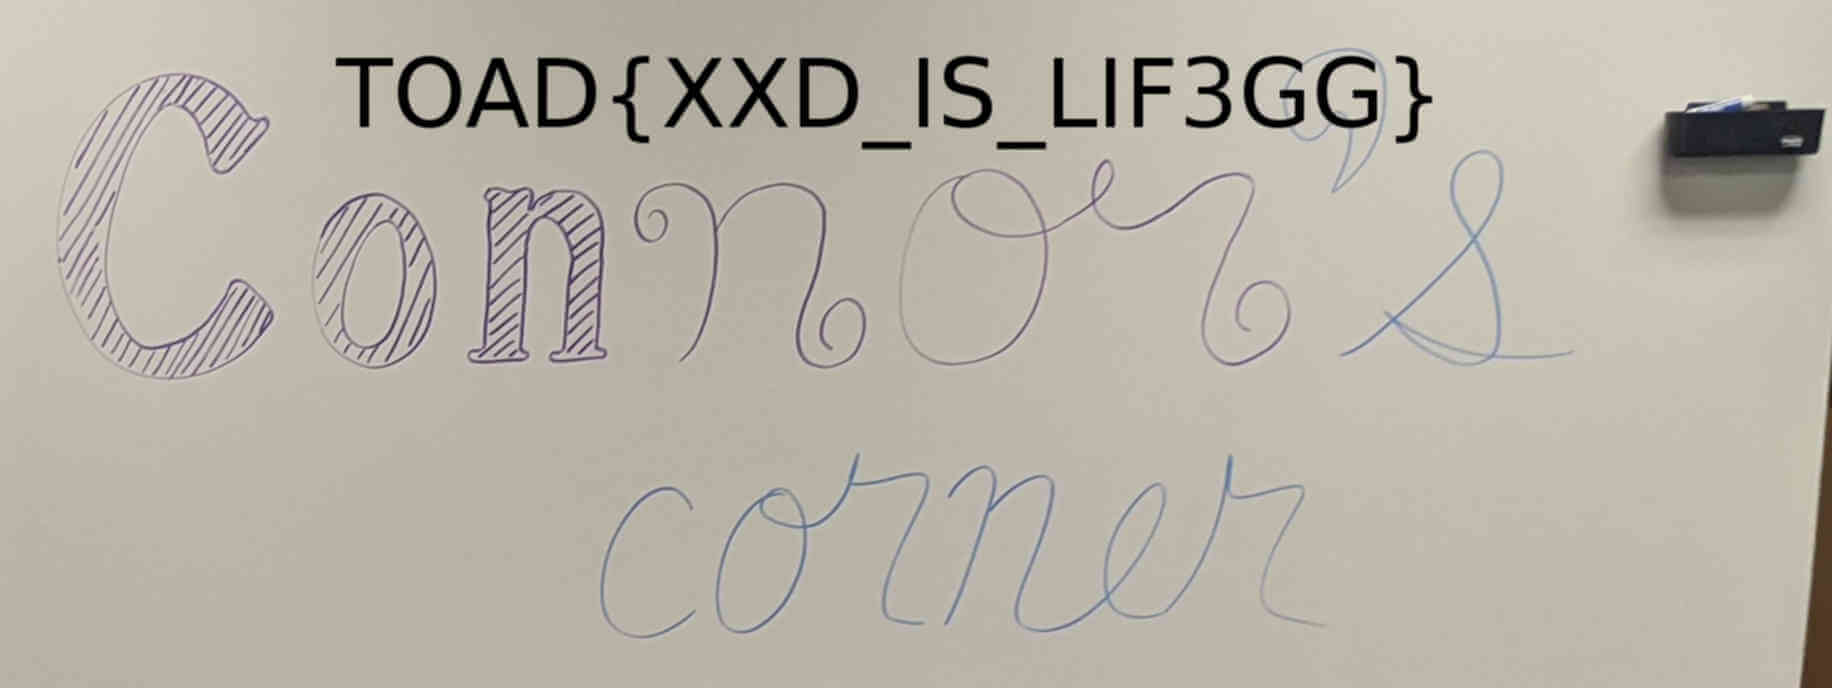 TOAD{XXD_IS_LIF3GG}
Connor's
corner